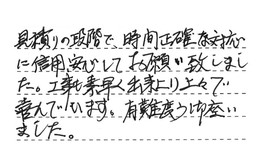 見積りの段階で、時間正確な対応
に信用、安心してお願い致しまし
た。工事も素早く出来より上々で
喜んでいます。有難う御座い
ました。